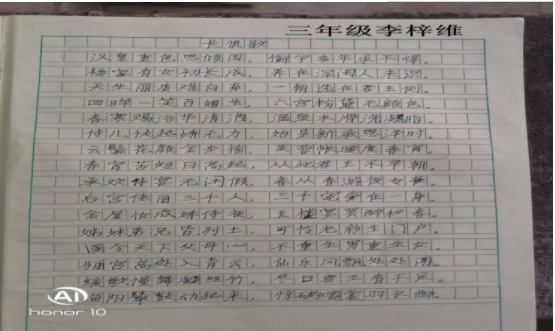 三年级李梓维
长恨歌
汉皇重色思倾国，御宇多年求不得。
杨家有女初长成，养在深闺人未识。
天生丽质难自弃，一朝选在君王侧。
回眸一笑百媚生，六宫粉黛无颜色。
春寒赐浴华清池，温泉水滑洗凝脂。
侍儿扶起娇无力，始是新承恩泽时。
云鬓花颜金步摇，芙蓉帐暖度春宵。
春宵苦短日高起，从此君王不早朝。
承欢侍宴无闲暇，春从春游夜专夜。
后宫佳丽三千人，三千宠爱在一身。
金屋妆成娇侍夜，玉楼宴罢醉和春。
姊妹弟兄皆列土，可怜光彩生门户。
遂令天下父母心，不重生男重生女。
骊宫高处入青云，仙乐风飘处处闻。
缓歌慢舞凝丝竹，尽日君王看不足。
渔阳鼙鼓动起来，惊破霓裳羽衣曲。
AI
honor 10